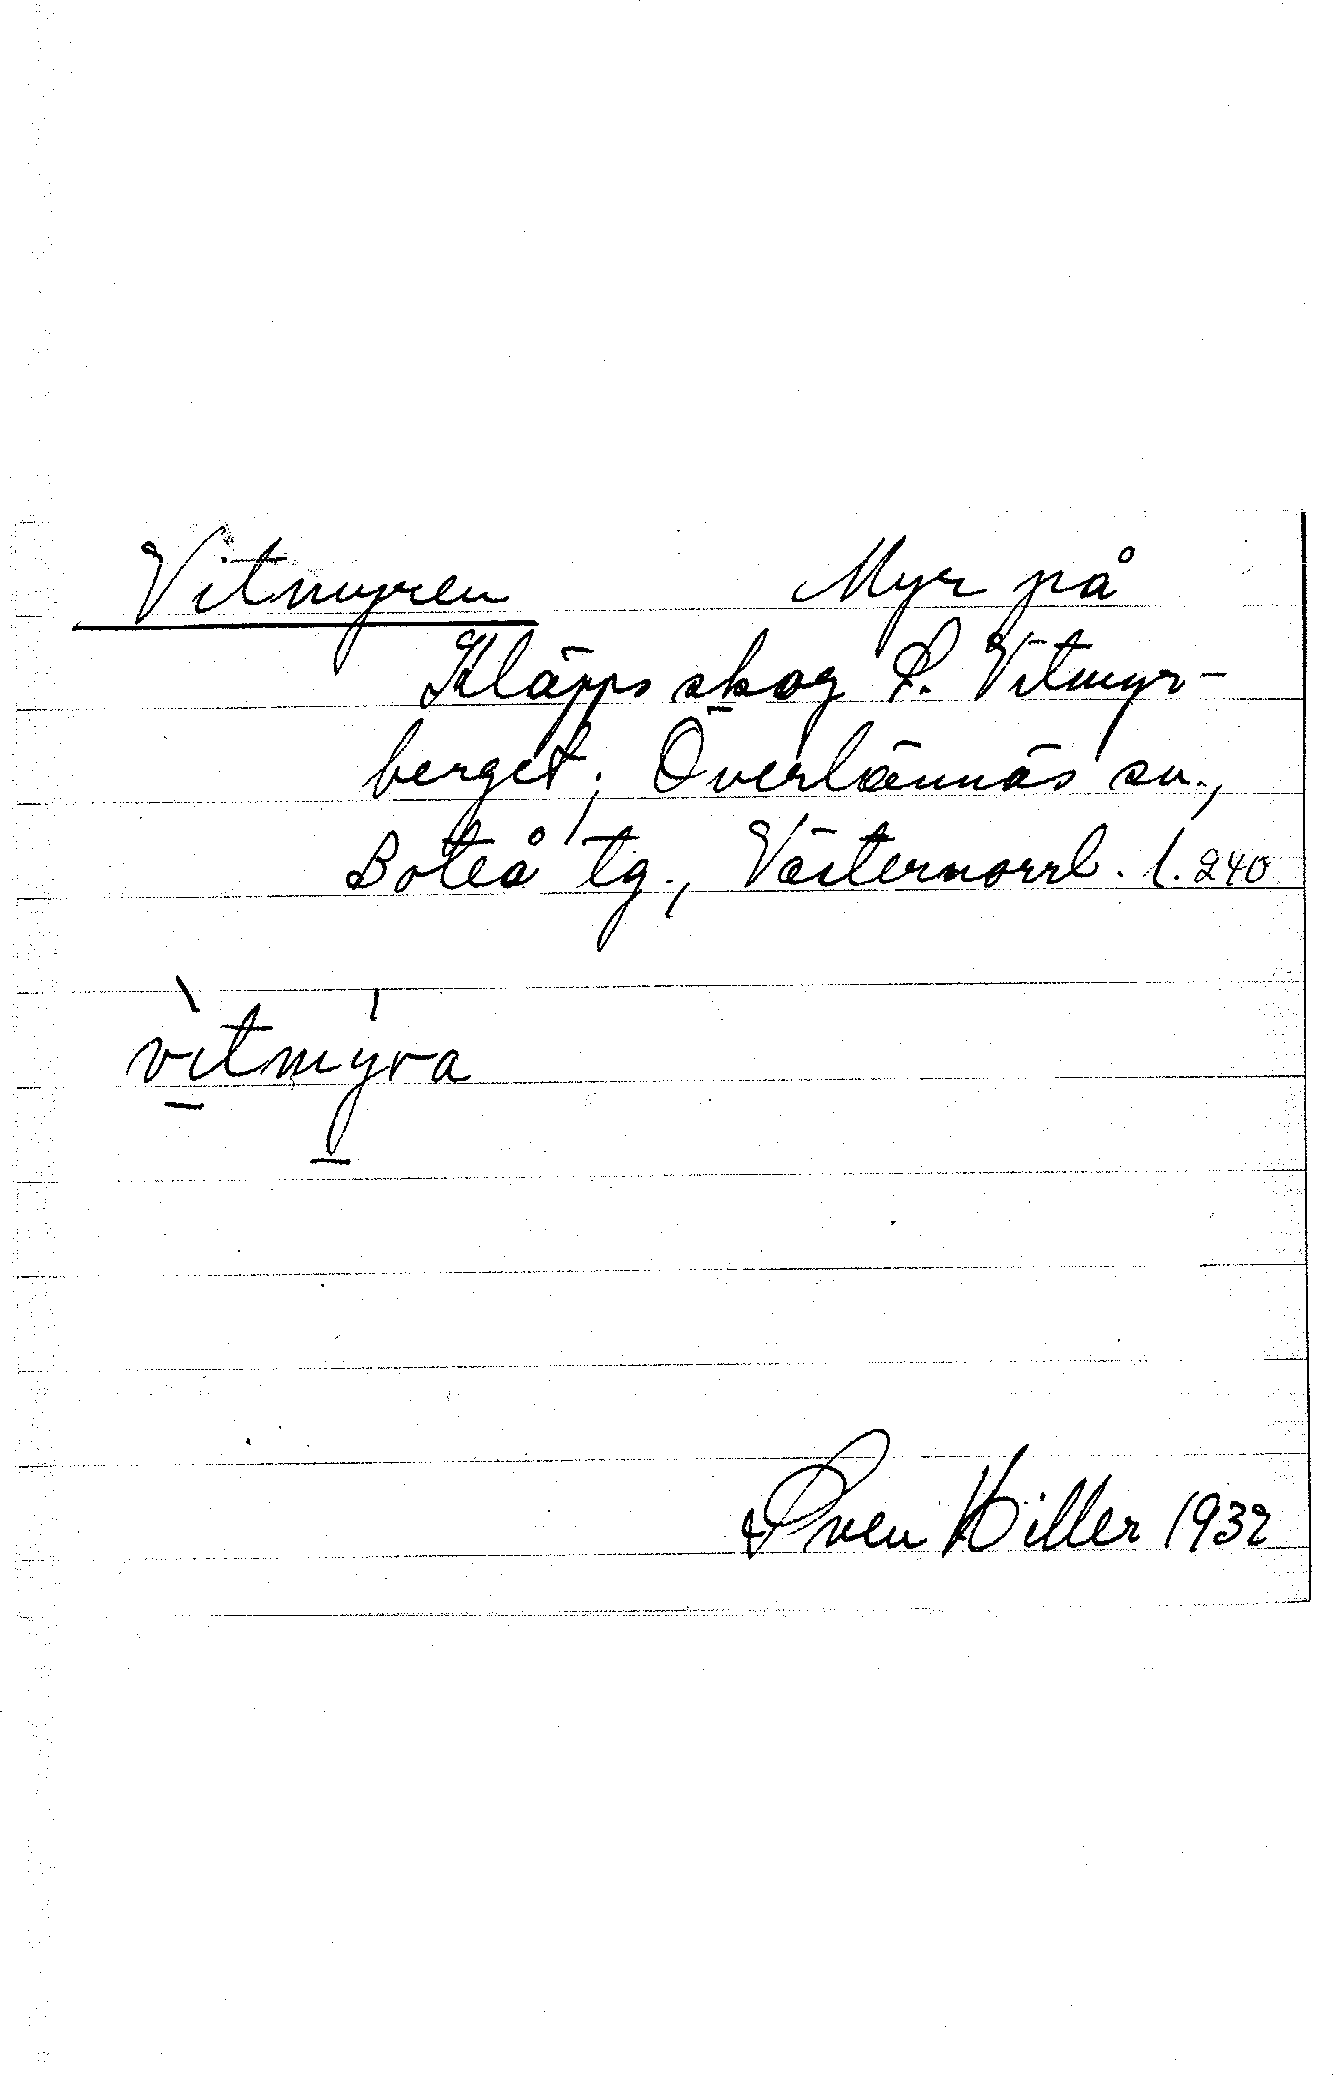 Vitmyren Myr på
Kläpps skog S. Vitmyr-
berget; Överlännäs sn.,
Boteå tg., Västernorrl. l. 240
vìtmýra
Sven Hiller 1932